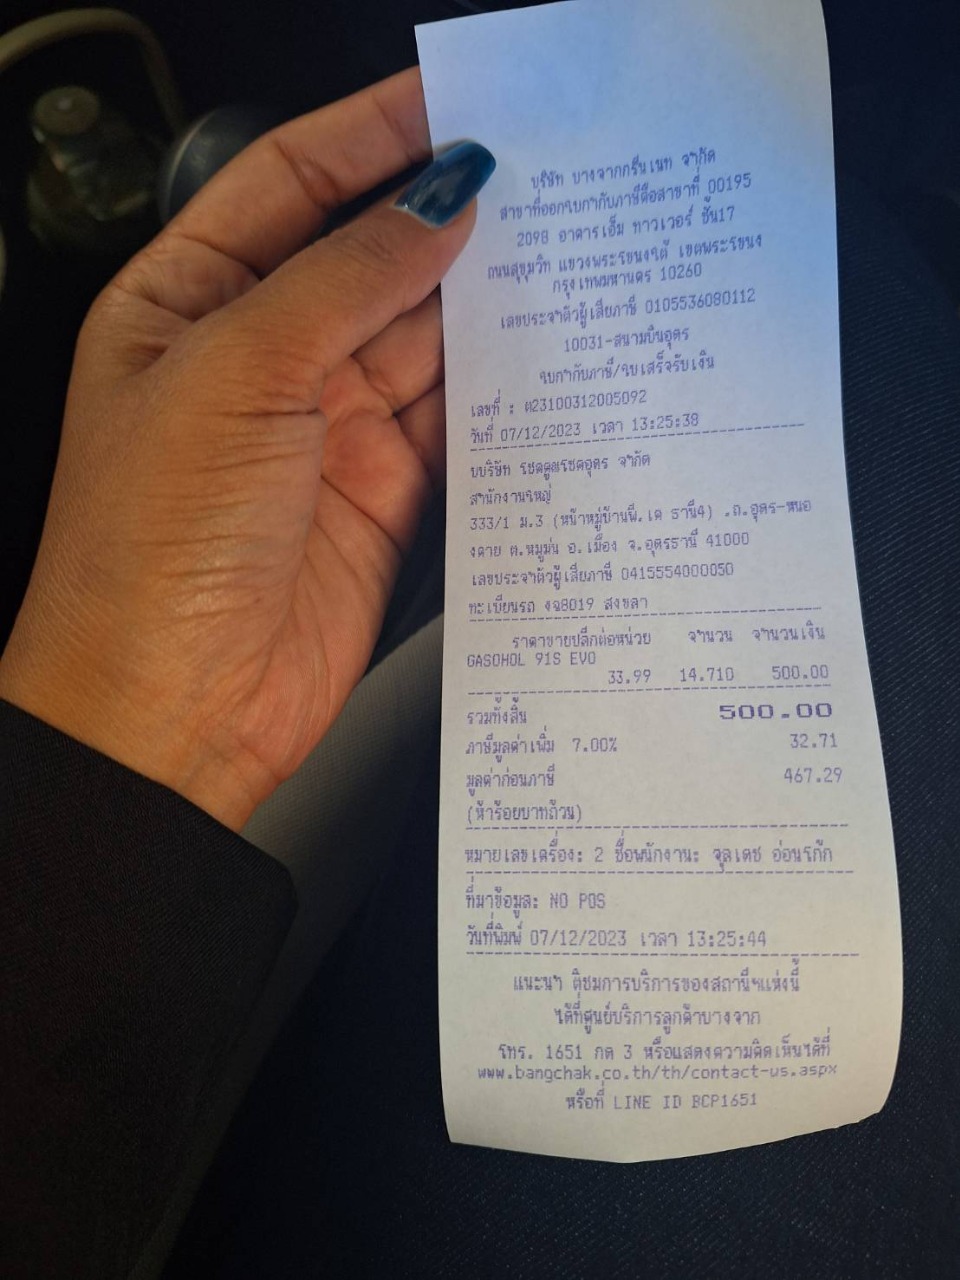 บริษัท บางจากกรีนเนท จำกัด
สาขาที่ออกใบกำกับภาษีคือสาขาที่ 00195
2098 อาคารเอ็ม ทาวเวอร์ ชั้น17
ถนนสุขุมวิท แขวงพระโขนงใต้ เขตพระโขนง
กรุงเทพมหานคร 10260
เลขประจำตัวผู้เสียภาษี 0105536080112
10031-สนามบินอุดร
ใบกำกับภาษี/ใบเสร็จรับเงิน
เลขที่ : ต23100312005092
วันที่ 07/12/2023 เวลา 13:25:38
บบริษัท โชคคูณโชคอุดร จำกัด
สำนักงานใหญ่
333/1 ม.3 (หน้าหมู่บ้านพี.เค ธานี4) .ถ.อุดร-หนอ
งคาย ต.หมูม่น อ.เมือง จ.อุดรธานี 41000
เลขประจำตัวผู้เสียภาษี 0415554000050
ทะเบียนรถ งฉ8019 สงขลา
ราคาขายปลีกต่อหน่วย จำนวน จำนวนเงิน
GASOHOL 91S EVO
33.99 14.710 500.00
รวมทั้งสิ้น 500.00
ภาษีมูลค่าเพิ่ม 7.00% 32.71
มูลค่าก่อนภาษี 467.29
(ห้าร้อยบาทถ้วน)
หมายเลขเครื่อง: 2 ชื่อพนักงาน: จุลเดช อ่อนโก๊ก
ที่มาข้อมูล: NO POS
วันที่พิมพ์ 07/12/2023 เวลา 13:25:44
แนะนำ ติชมการบริการของสถานีฯแห่งนี้
ได้ที่ศูนย์บริการลูกค้าบางจาก
โทร. 1651 กด 3 หรือแสดงความคิดเห็นได้ที่
www.bangchak.co.th/th/contact-us.aspx
หรือที่ LINE ID BCP1651